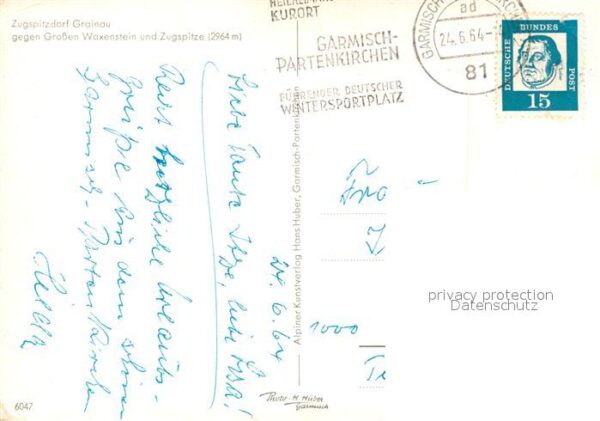 Zugspitzdorf Grainau
gegen Großen Waxenstein und Zugspitze (2964 m)
KURORT
GARMISCH-
PARTENKIRCHEN
FÜHRENDER DEUTSCHER
WINTERSPORTPLATZ
GARMISCH-
ad
24.6.64
81
DEUTSCHE
BUNDES
POST
15
24.6.64
Liebe Tante
liebe
Recht herzliche Urlaubs-
grüße aus dem schönen
Garmisch-Partenkirchen
Alpiner Kunstverlag Hans Huber, Garmisch-Partenkirchen
1000
privacy protection
Datenschutz
Photo - H. Huber
Garmisch
6047